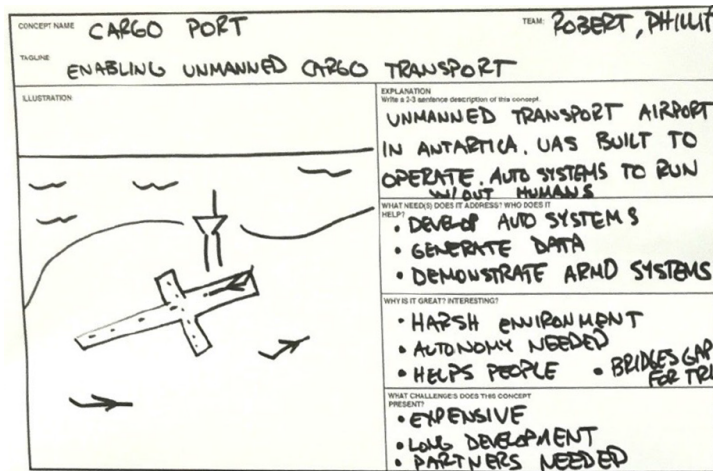 CONCEPT NAME CARGO PORT
TEAM: ROBERT, PHILLIP
TAGLINE
ENABLING UNMANNED CARGO TRANSPORT
ILLUSTRATION
EXPLANATION
Write a 2-3 sentence description of this concept.
UNMANNED TRANSPORT AIRPORT
IN ANTARTICA. UAS BUILT TO
OPERATE. AUTO SYSTEMS TO RUN
W/OUT HUMANS
WHAT NEED(S) DOES IT ADDRESS? WHO DOES IT
HELP?
• DEVELOP AUTO SYSTEMS
• GENERATE DATA
• DEMONSTRATE ARMD SYSTEMS
WHY IS IT GREAT? INTERESTING?
• HARSH ENVIRONMENT
• AUTONOMY NEEDED
• HELPS PEOPLE • BRIDGES GAP
FOR
WHAT CHALLENGES DOES THIS CONCEPT
PRESENT?
• EXPENSIVE
• LONG DEVELOPMENT
• PARTNERS NEEDED